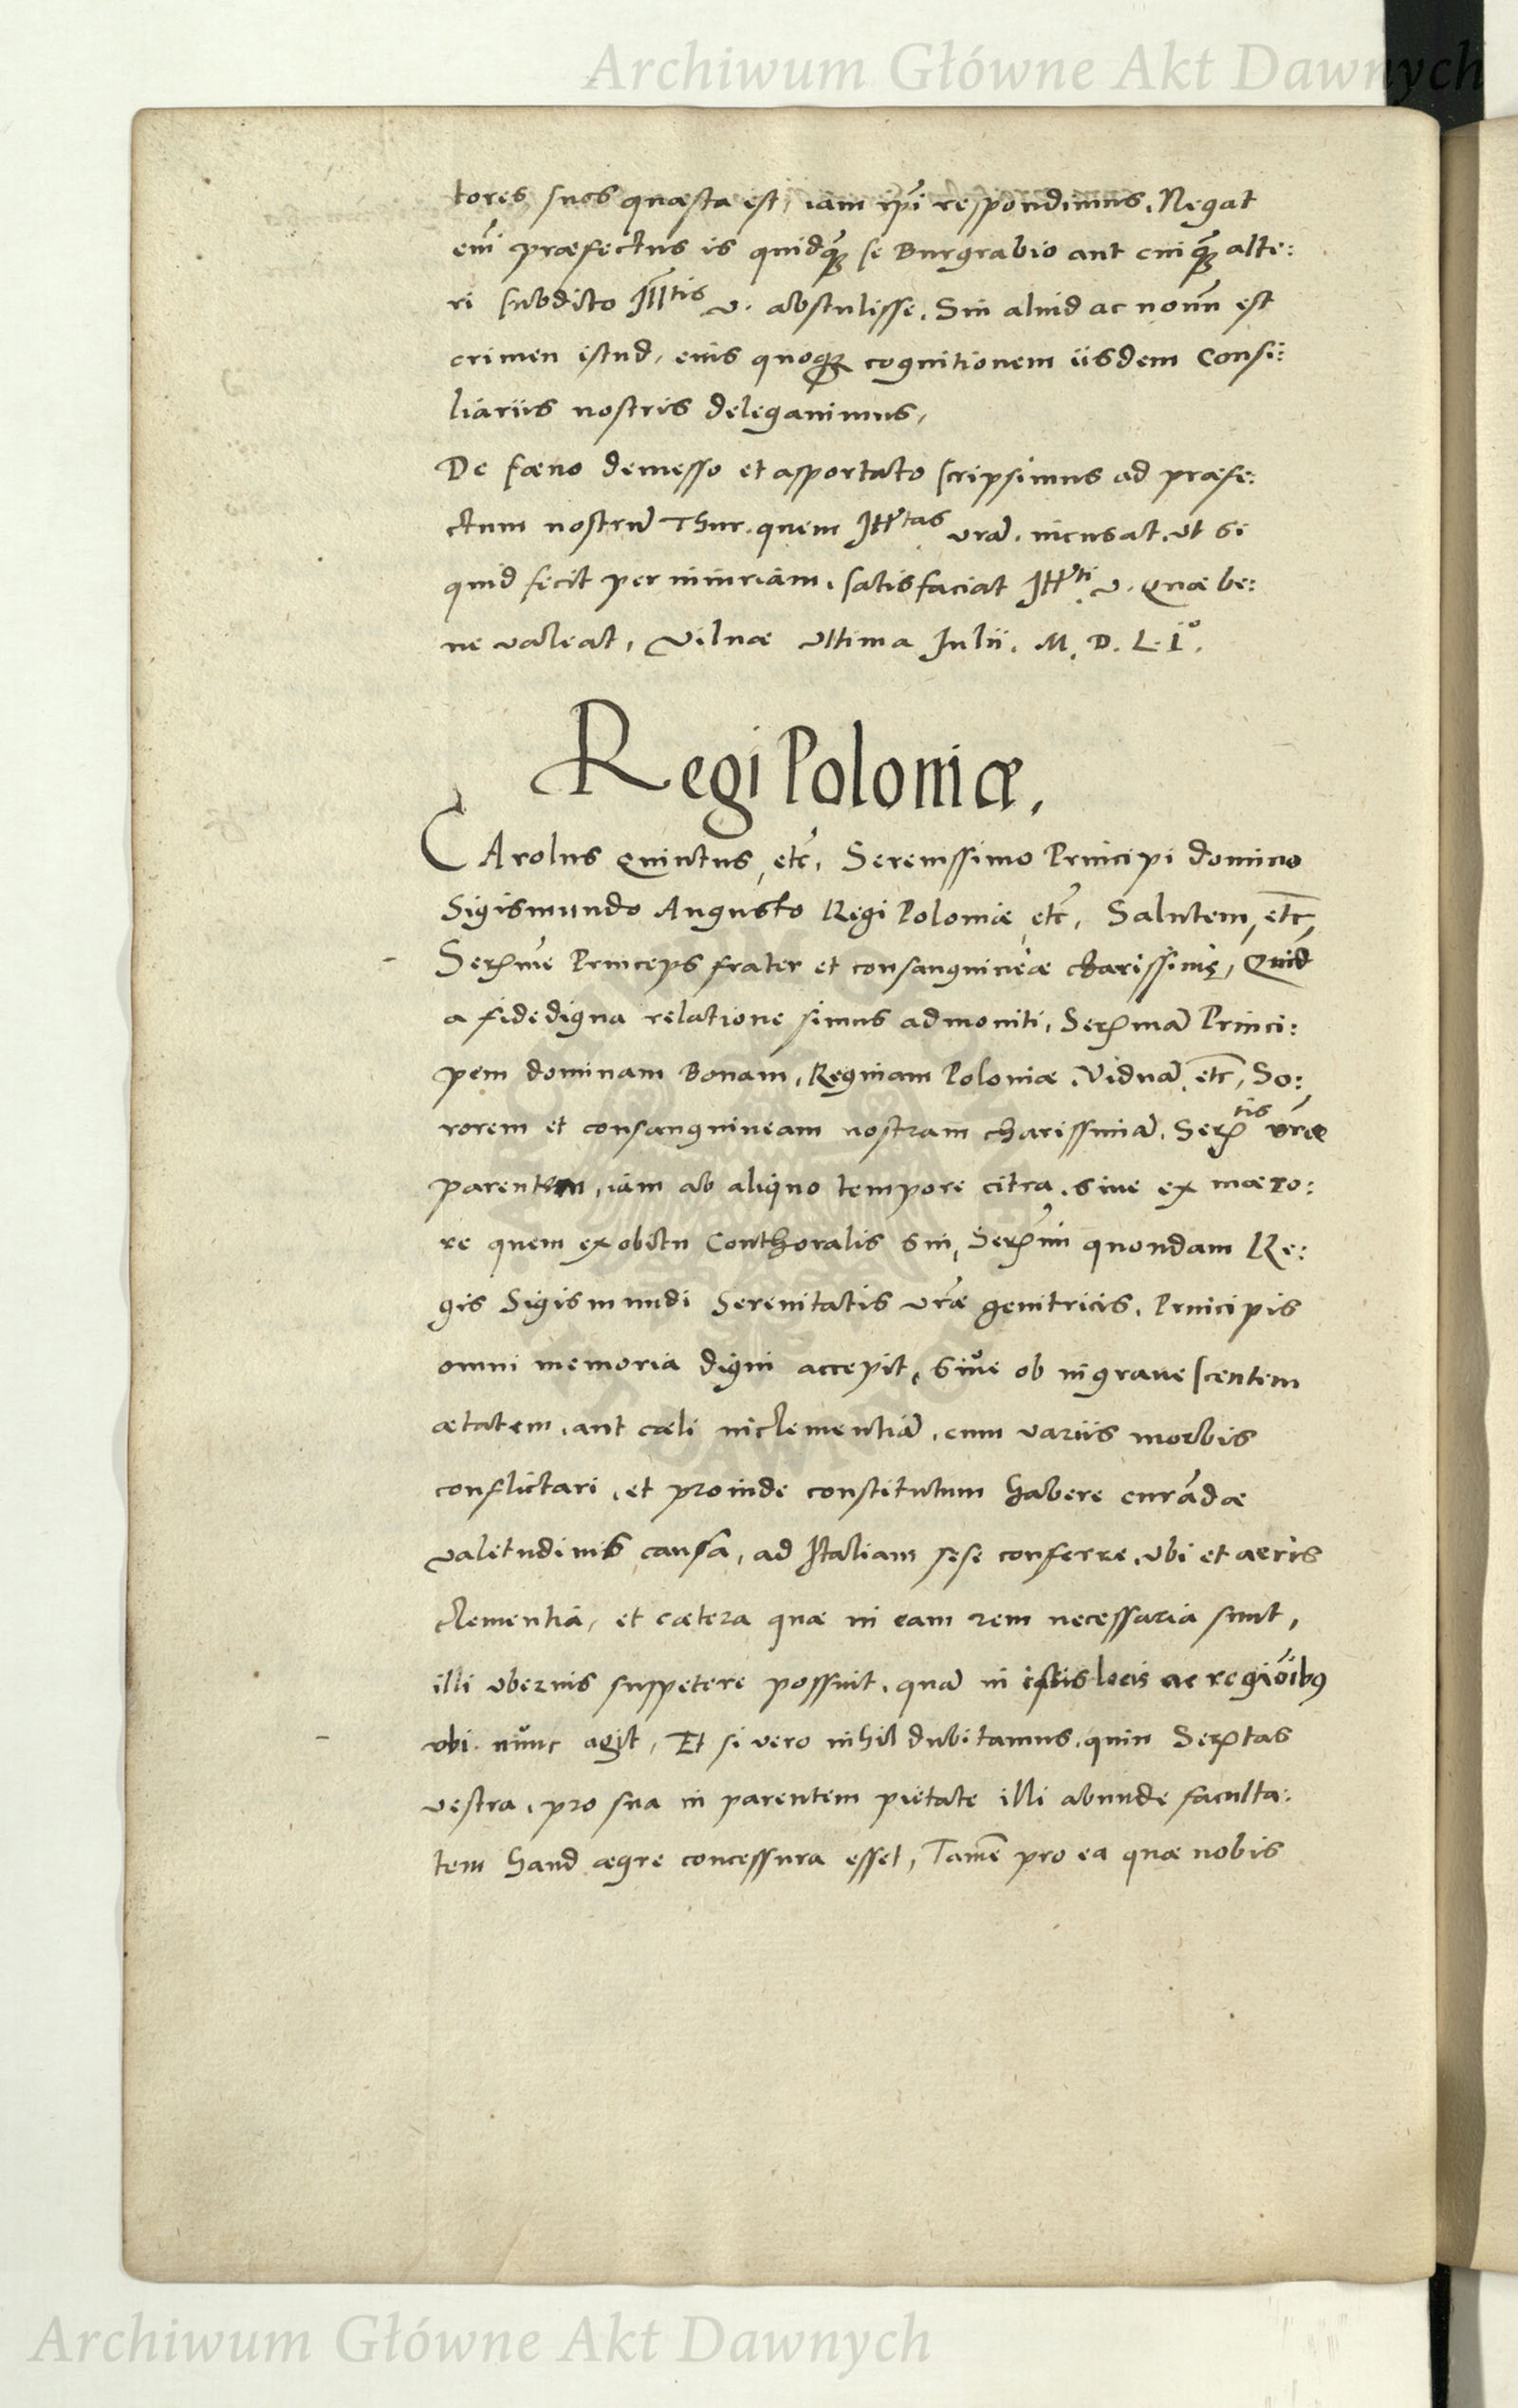 Archiwum Główne Akt Dawnych
tores suos quæsta est, iam ipsi respondimus. Negat
eni præfectus is quidq̃ se Burgrabio aut cuiq̃ alte:
ri subdito Illtis v. abstulisse. Sin aliud ac nouũ est
crimen istud, eius quoq; cognitionem iisdem Consi:
liariis nostris delegauimus,
De fœno demesso et asportato scripsimus ad præfe:
ctum nostrũ Thur. quem Illtas vrã. incusat. ut si
quid fecit per iniuriam. satisfaciat Illti v. Quæ be:
ne valeat, Vilnæ Ultima Iulii. M. D. L. I°.
Regi Poloniæ.
CArolus Quintus, etc̃, Serenissimo Principi domino
Sigismundo Augusto Regi Poloniæ, etc̃, Salutem, etc̃,
Serme Princeps frater et consanguineæ charissime, Quid
a fidedigna relatione simus admoniti, Sermã Princi:
pem dominam Bonam, Reginam Poloniæ. Viduã, etc̃, So:
rorem et consanguineam nostram charissimã. Sertis vræ
parentem, iam ab aliquo tempore citra, siue ex mœro:
re quem ex obitu Conthoralis sui, Sermi quondam Re:
gis Sigismundi Serenitatis vræ genitricis. Principis
omni memoria digni accepit, siue ob ingrauescentem
ætatem, aut cæli inclementiã, cum variis morbis
conflictari, et proinde constitutum habere curãdæ
valetudinis causa, ad Italiam sese conferre. Ubi et aeris
clementia, et cætera quæ in eam rem necessaria sunt,
illi uberius suppetere possint. quã in istis locis ac regiõibꝰ
ubi nunc agit, Et si vero nihil dubitamus. quin Sertas
vestra, pro sua in parentem pietate illi abunde faculta:
tem haud ægre concessura esset, Tamẽ pro ea quæ nobis
Archiwum Główne Akt Dawnych